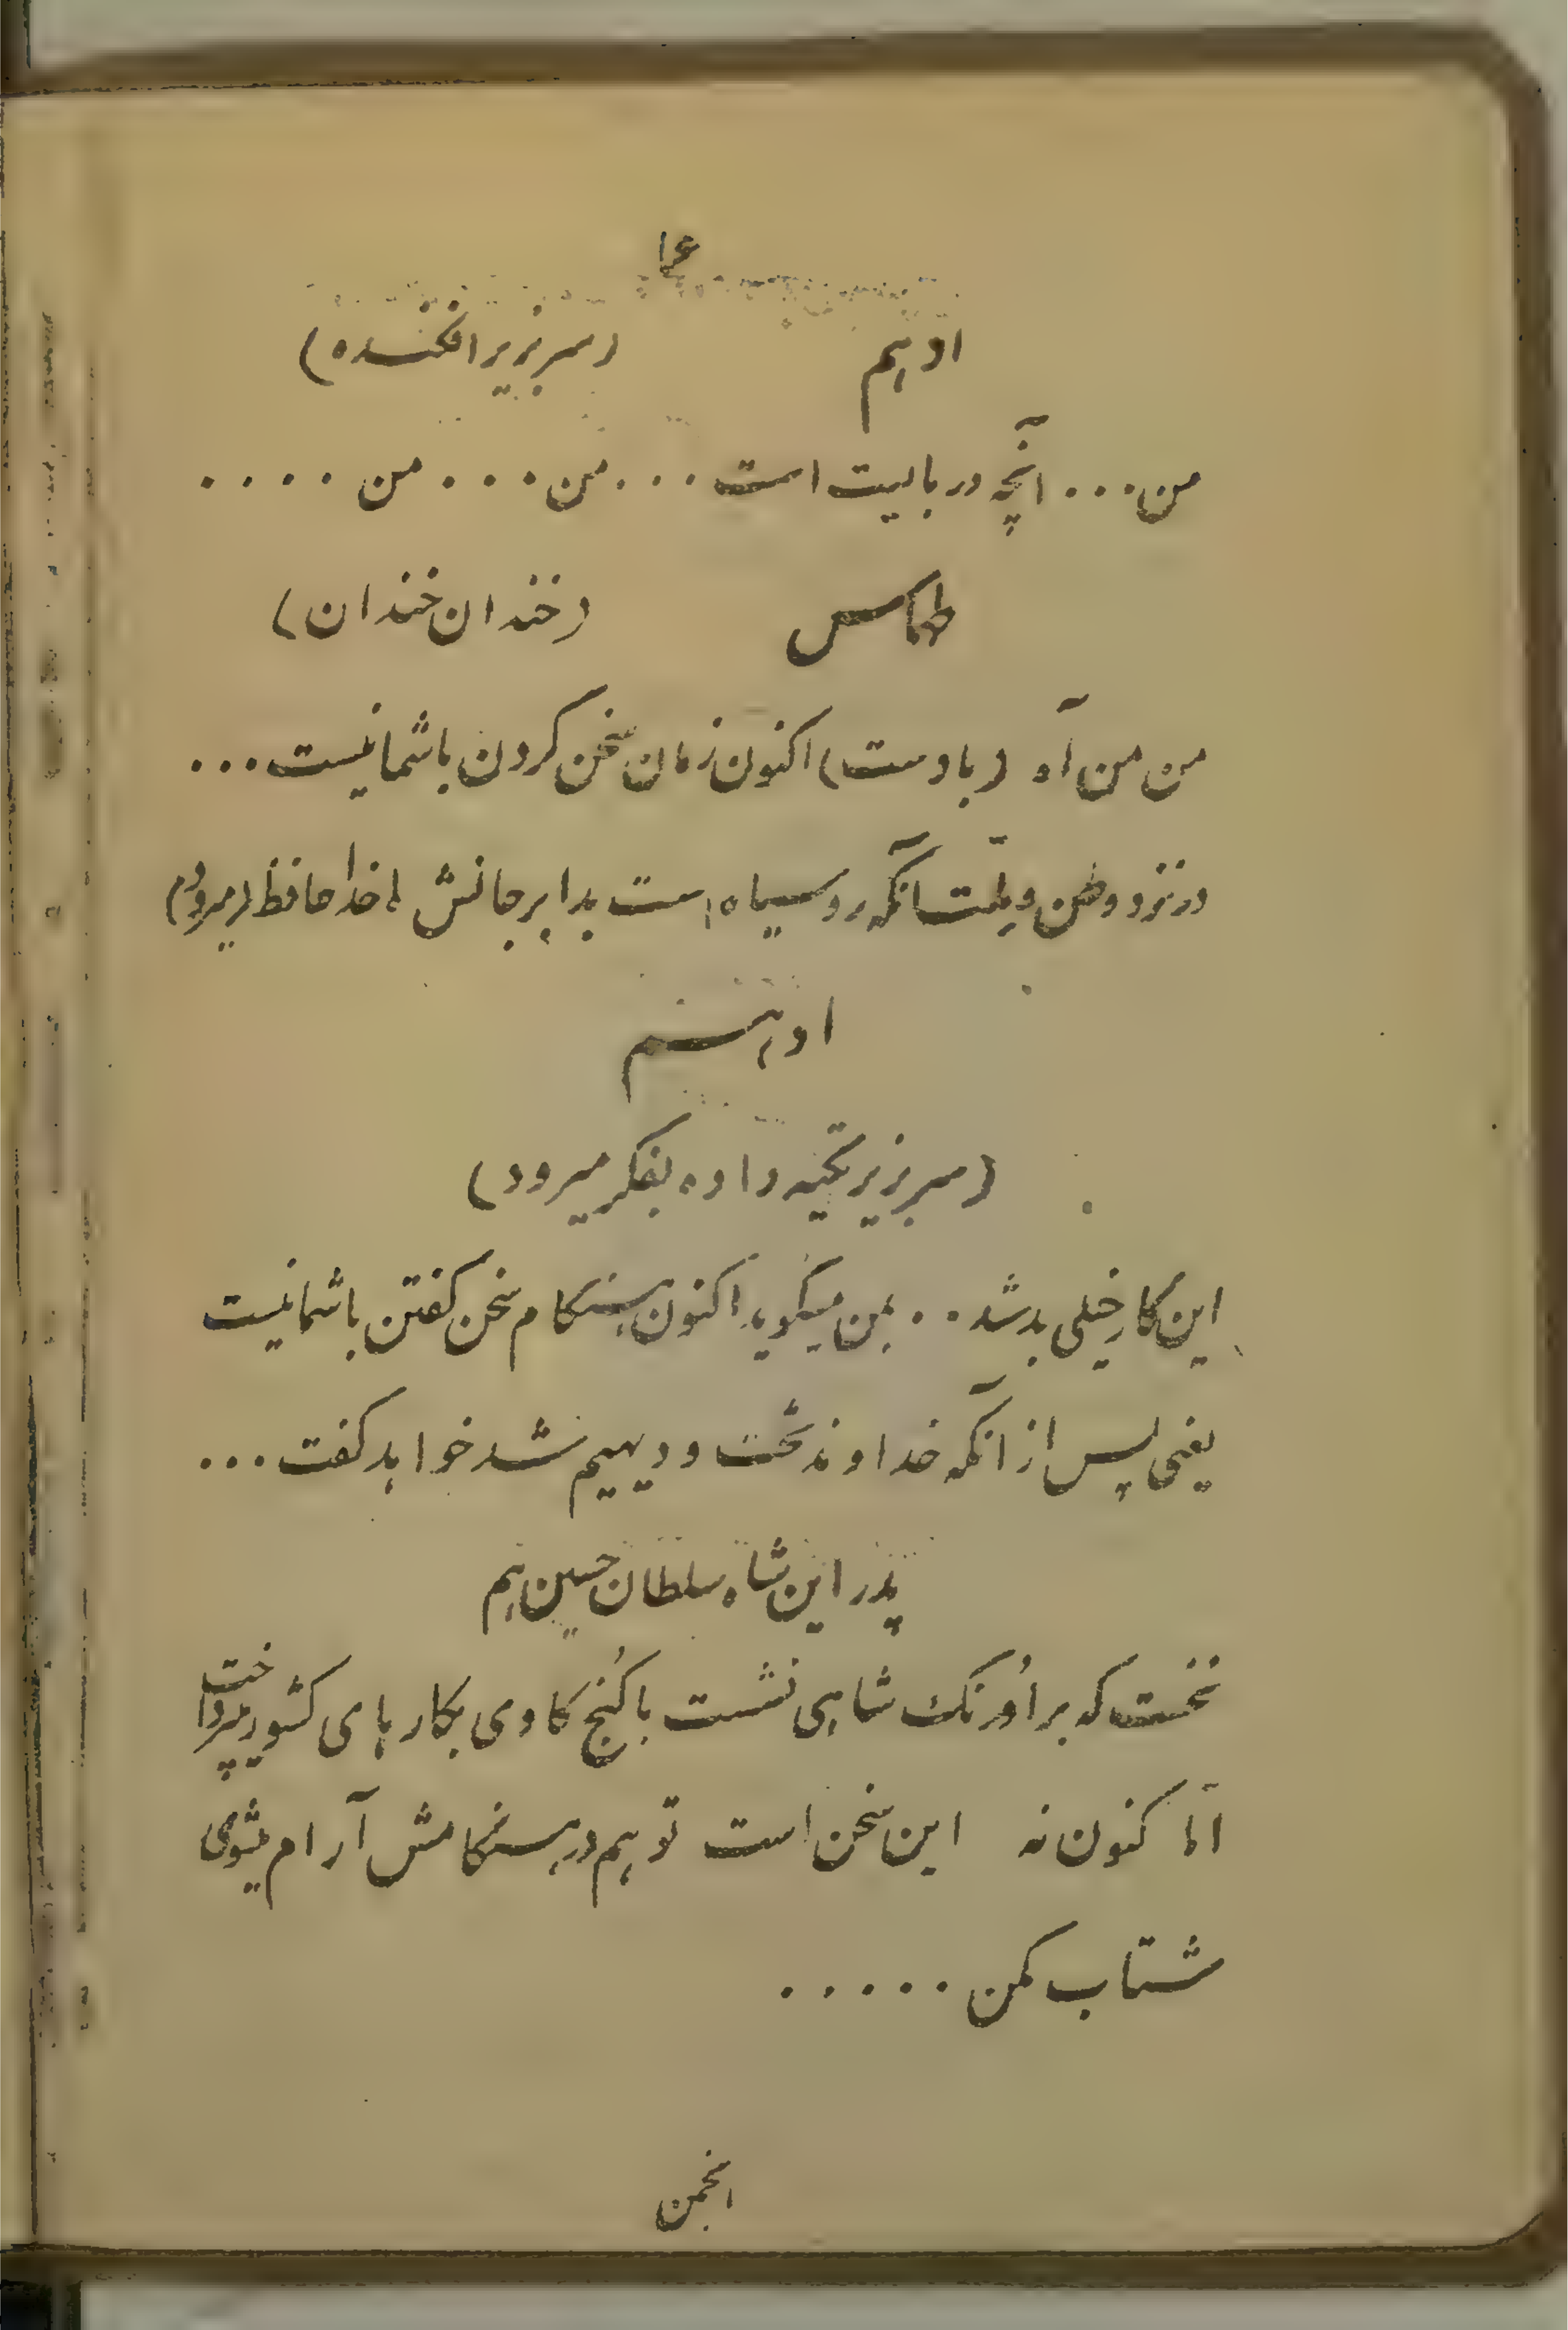 ادهم (سربزیر افکنده)
من... آنچه در بایست است... من... من....
طهماسب (خندان خندان)
من من آه (بادست) اکنون زمان سخن کردن باشما نیست...
در نزد وطن و ملّت آنکه روسیاه است بدا برجانش خداحافظ (میرود)
ادهم
(سربزیر تکیه داده بفکر میرود)
این کار خیلی بد شد.. بمن میگوید اکنون هنگام سخن گفتن باشما نیست
یعنی پس از آنکه خداوند تخت و دیهیم شد خواهد گفت...
پدر این شاه سلطان حسین هم
نخست که بر اُورنک شاهی نشست با کُنج کاوی بکار های کشور میپرداخت
امّا کنون نه این سخن است تو هم در هنگامش آرام میشوی
شتاب مکن.....
انجمن